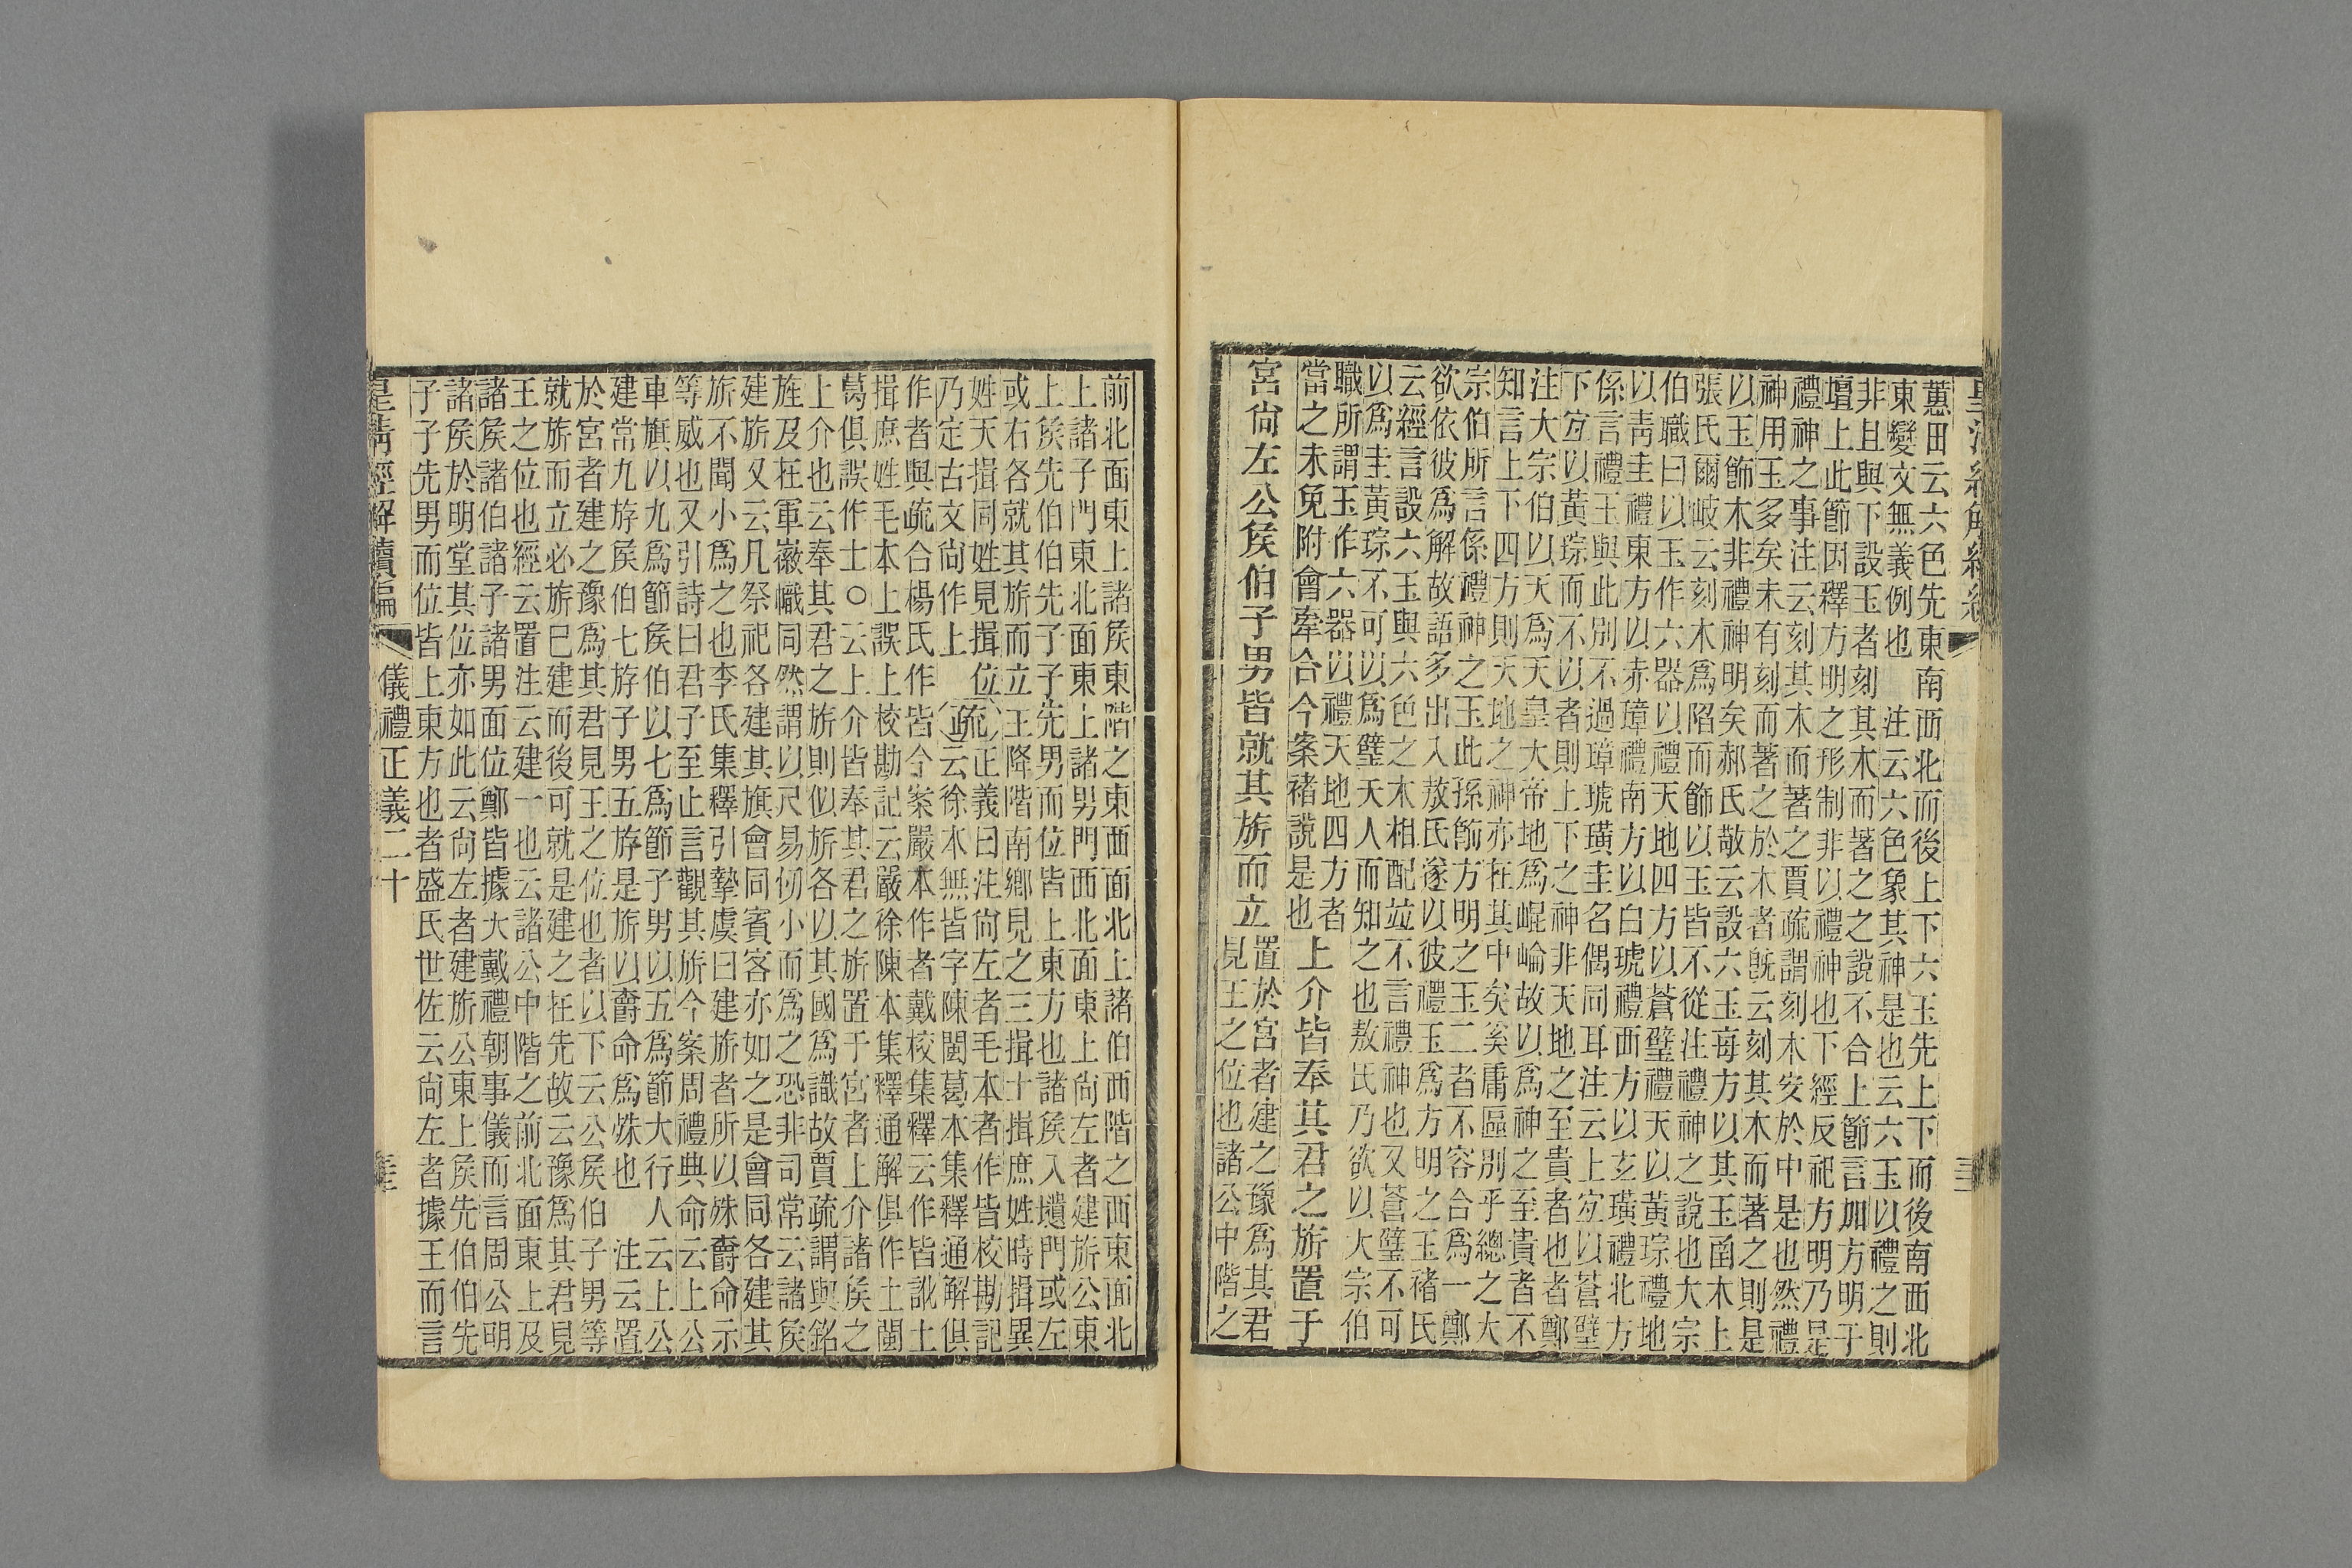 蕙田云六色先東南西北而後上下六玉先上下而後南西北
東變文無義例也 注云六色象其神是也云六玉以禮之則
非且與下設玉者刻其木而著之之說不合上節言加方明于
壇上此節因釋方明之形制非以禮神也下經反祀方明乃是
禮神之事注云刻其木而著之賈疏謂刻木安於中是也然禮
神用玉多矣未有刻而著之於木者旣云刻其木而著之則是
以玉飾木非禮神明矣郝氏敬云設六玉每方以其玉函木上
張氏爾岐云刻木爲陷而飾以玉皆不從注禮神之說也大宗
伯職曰以玉作六器以禮天地四方以蒼璧禮天以黃琮禮地
以靑圭禮東方以赤璋禮南方以白琥禮西方以玄璜禮北方
係言禮玉與此別不過璋琥璜圭名偶同耳注云上宜以蒼璧
下宜以黃琮而不以者則上下之神非天地之至貴者也者鄭
注大宗伯以天爲天皇大帝地爲崐崘故以爲神之至貴者不
知言上下四方則天地之神亦在其中矣奚庸區別乎總之大
宗伯所言係禮神之玉此係飾方明之玉二者不容合爲一鄭
欲依彼爲解故語多出入敖氏遂以彼禮玉爲方明之玉褚氏
云經言設六玉與六色之木相配竝不言禮神也又蒼璧不可
以爲圭黃琮不可以爲璧夫人而知之也敖氏乃欲以大宗伯
職所謂玉作六器以禮天地四方者
當之未免附會牽合今案褚說是也
上介皆奉其君之旂置于
宮尙左公侯伯子男皆就其旂而立
置於宮者建之豫爲其君
見王之位也諸公中階之
前北面東上諸侯東階之東西面北上諸伯西階之西東面北
上諸子門東北面東上諸男門西北面東上尙左者建旂公東
上侯先伯伯先子子先男而位皆上東方也諸侯入壝門或左
或右各就其旂而立王降階南鄕見之三揖土揖庶姓時揖異
姓天揖同姓見揖位乃定古文尙作上
疏正義曰注尙左者毛本者作皆校勘記
云徐本無皆字陳閩葛本集釋通解俱
作者與疏合楊氏作皆今案嚴本作者戴校集釋云作皆訛土
揖庶姓毛本上誤上校勘記云嚴徐陳本集釋通解俱作土閩
葛俱誤作士○云上介皆奉其君之旂置于宮者上介諸侯之
上介也云奉其君之旂則似旂各以其國爲識故賈疏謂與銘
旌及在軍徽幟同然謂以尺易仞小而爲之恐非司常云諸侯
建旂又云凡祭祀各建其旗會同賓客亦如之是會同各建其
旂不聞小爲之也李氏集釋引摯虞曰建旂者所以殊爵命示
等威也又引詩曰君子至止言觀其旂今案周禮典命云上公
車旗以九爲節侯伯以七爲節子男以五爲節大行人云上公
建常九斿侯伯七斿子男五斿是旂以爵命爲殊也 注云置
於宮者建之豫爲其君見王之位也者以下云公侯伯子男等
就旂而立必旂已建而後可就是建之在先故云豫爲其君見
王之位也經云置注云建一也云諸公中階之前北面東上及
諸侯諸伯諸子諸男面位鄭皆據大戴禮朝事儀而言周公明
諸侯於明堂其位亦如此云尙左者建旂公東上侯先伯伯先
子子先男而位皆上東方也者盛氏世佐云尙左者據王而言
皇淸經解續編 儀禮正義二十